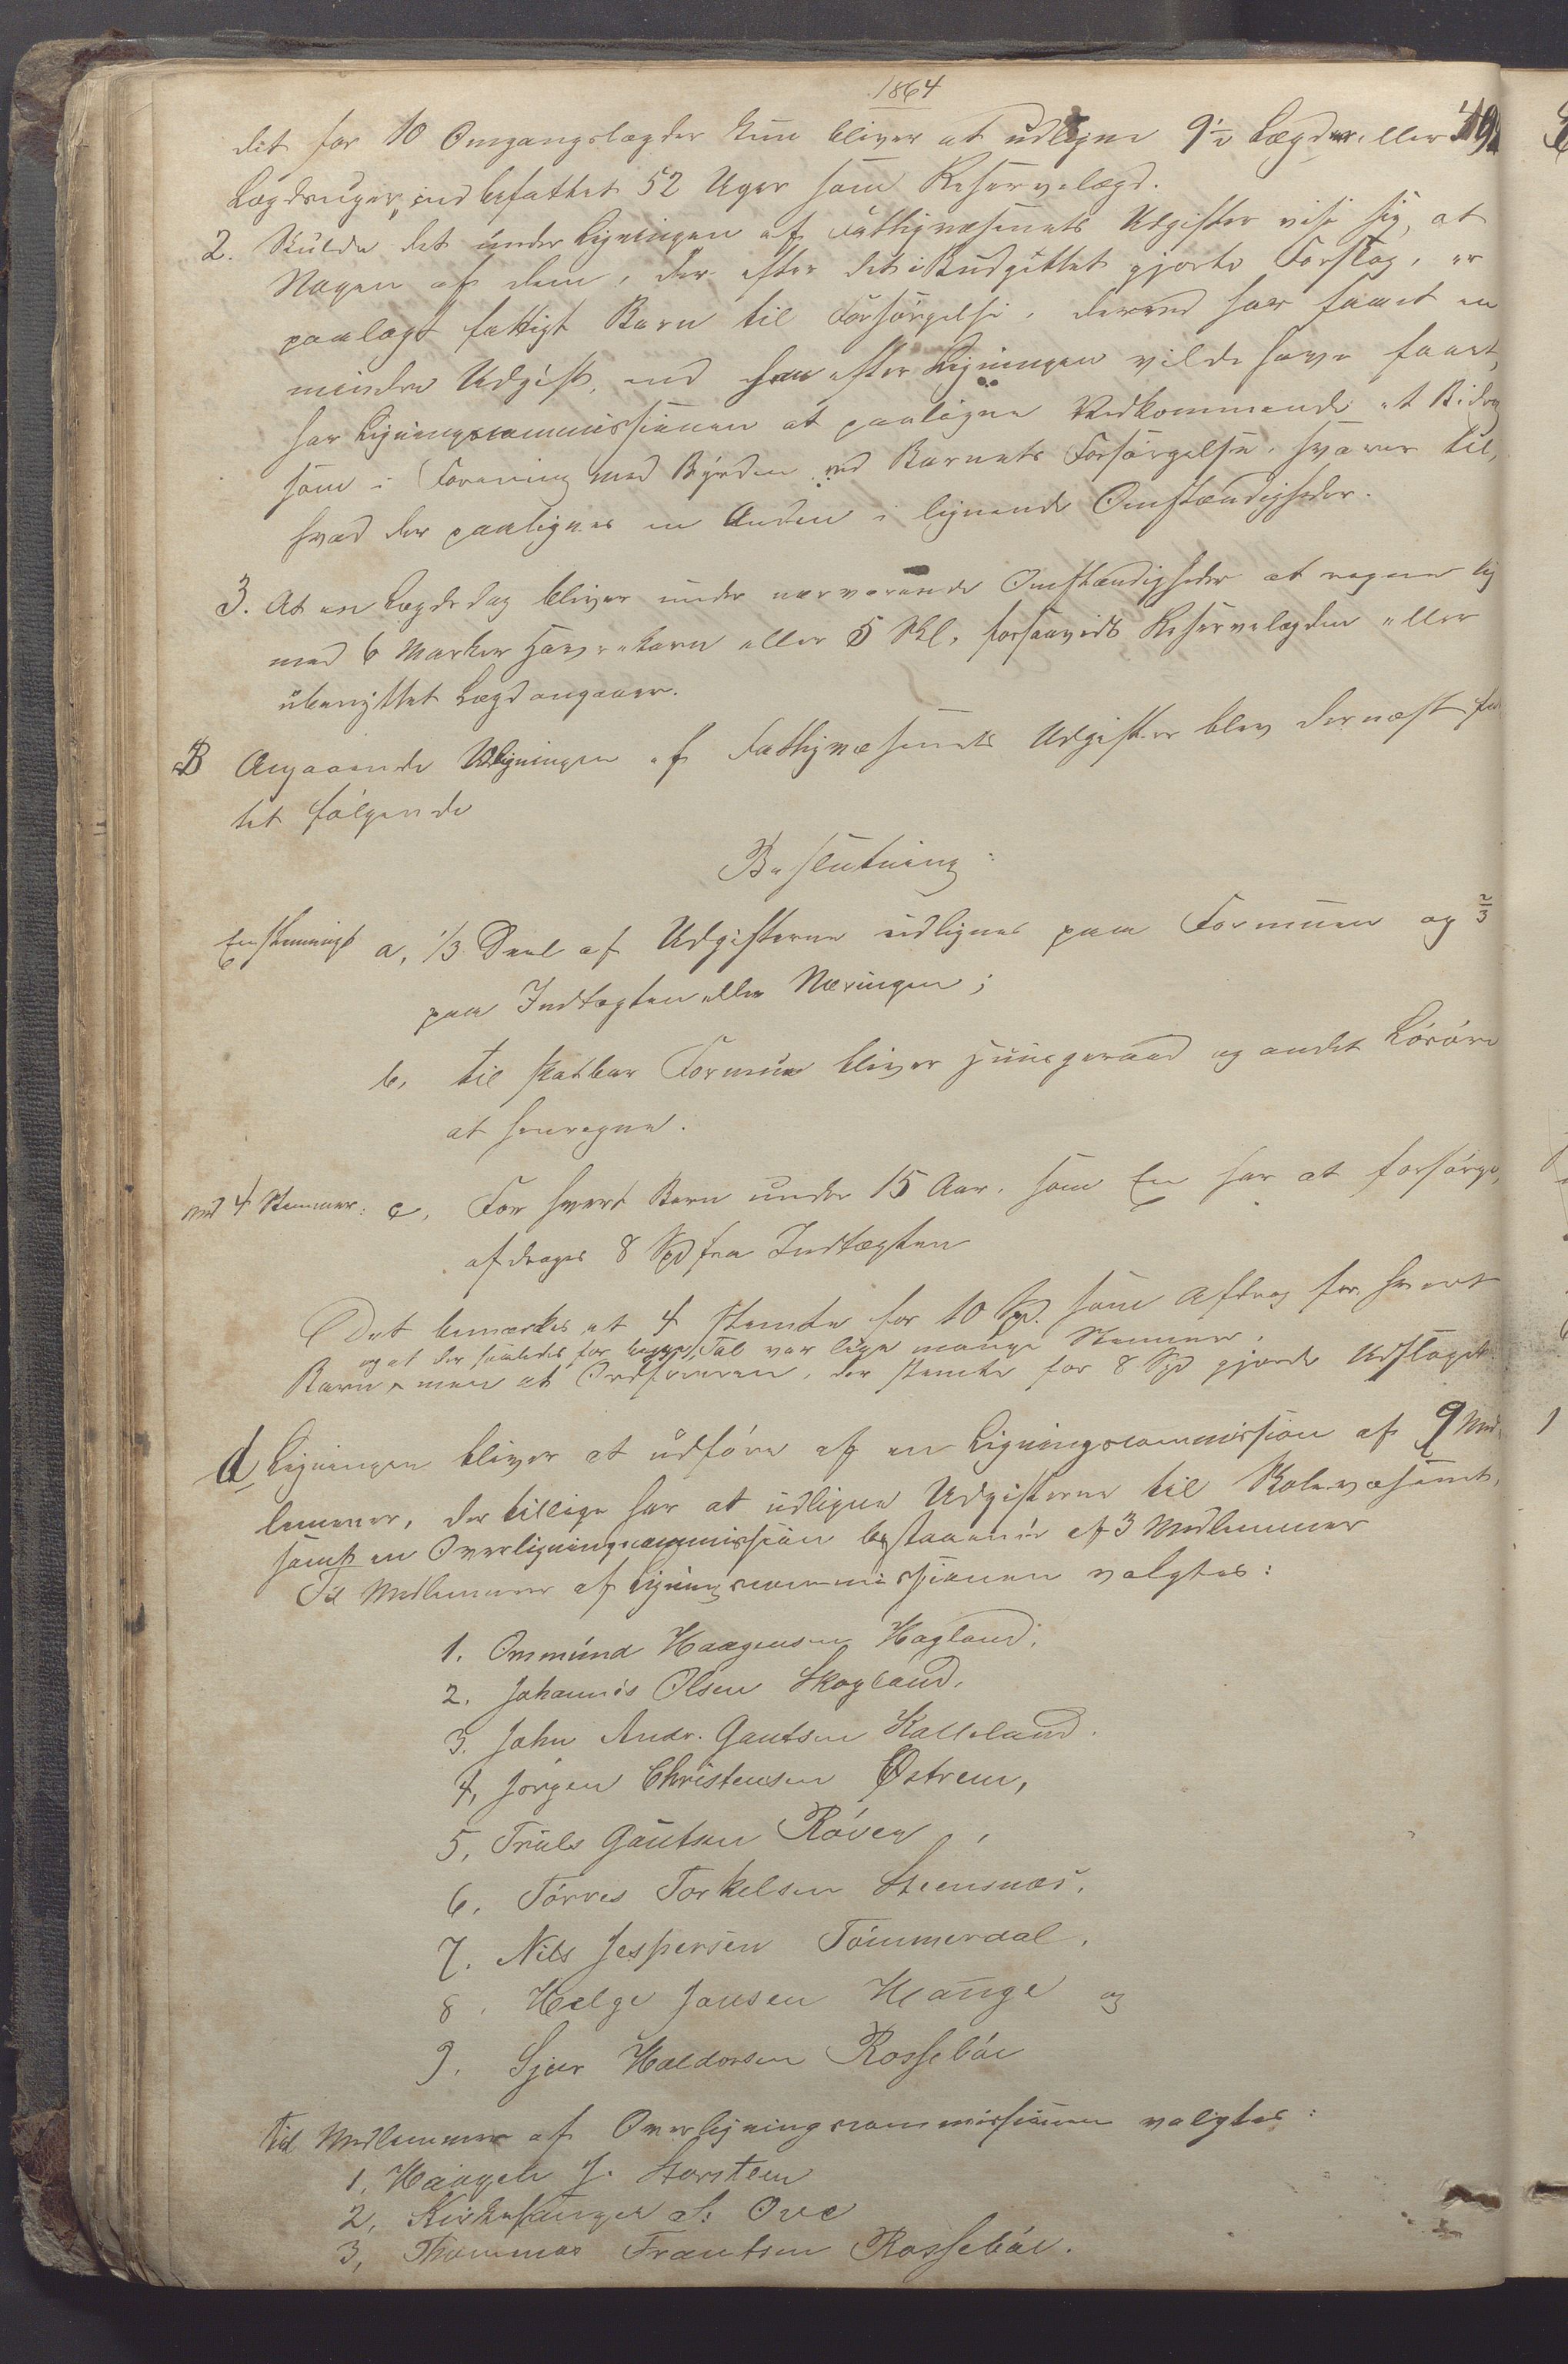 1864
det for 10 Omgangslægder kun bliver at udligne 9½ Lægder eller 494
Lægdsuger, indbefattet 52 Uger som Reservelægd.
2. Skulde det under Ligningen af Fattigvæsenets Udgifter vise sig, at
Nogen af dem, der efter det i Budgettet gjorte Forslag, er
paalagt fattigt Barn til Forsørgelse, derved har faaet en
mindre Udgift, end han efter Ligningen vilde have faaet,
har Ligningscommissionen at paaligne Vedkommende et Bidrag
som i Forening med Byrden ved Barnets Forsørgelse, svarer til,
hvad der paalignes en Anden i lignende Omstændigheder.
3. At en Lægdsdag bliver under nærværende Omstændigheder at regne lig
med 6 Marker Havrekorn eller 5 Skl, forsaavidt Reservelægden eller
ubenyttet Lægd angaaer.
B Angaaende Udligningen af Fattigvæsenets Udgifter blev dernæst fat
tet følgende
Beslutning:
Enstemmigt a, 1/3 Deel af Udgifterne udlignes paa Formuen og 2/3
paa Indtægten eller Næringen;
b, til skatbar Formue bliver Huusgeraad og andet Løsøre
at henregne.
med 4 Stemmer: c, For hvert Barn under 15 Aar, som En har at forsørge,
afdrages 8 Spd fra Indtægten
Det bemærkes at 4 stemte for 10 Spd. som Afdrag for hvert
og at der saaledes for begge Tal var lige mange Stemmer,
Barn, men at Ordføreren, der stemte for 8 Spd gjorde Udslaget.
d Ligningen bliver at udføre af en Ligningscommission af 9 Med-
lemmer, der tillige har at udligne Udgifterne til Skolevæsenet,
samt en Overligningscommission bestaaende af 3 Medlemmer
Til Medlemmer af Ligningscommissionen valgtes:
1. Ommund Haagensen Hagland,
2. Johannes Olsen Skogland,
3. John Andr. Gautsen Kalleland.
4, Jørgen Christensen Østrem,
5, Truls Gautsen Røven,
6. Tørres Torkelsen Steensnæs,
7. Nils Jespersen Tømmerdal,
8. Helge Jansen Hauge og
9. Sjur Haldorsen Rossebøe
Til Medlemmer af Overligningscommissionen valgtes:
1, Haagen J. Storsteen
2, Kirkesanger S. Ove
3, Thommas Frantsen Rossebøe.